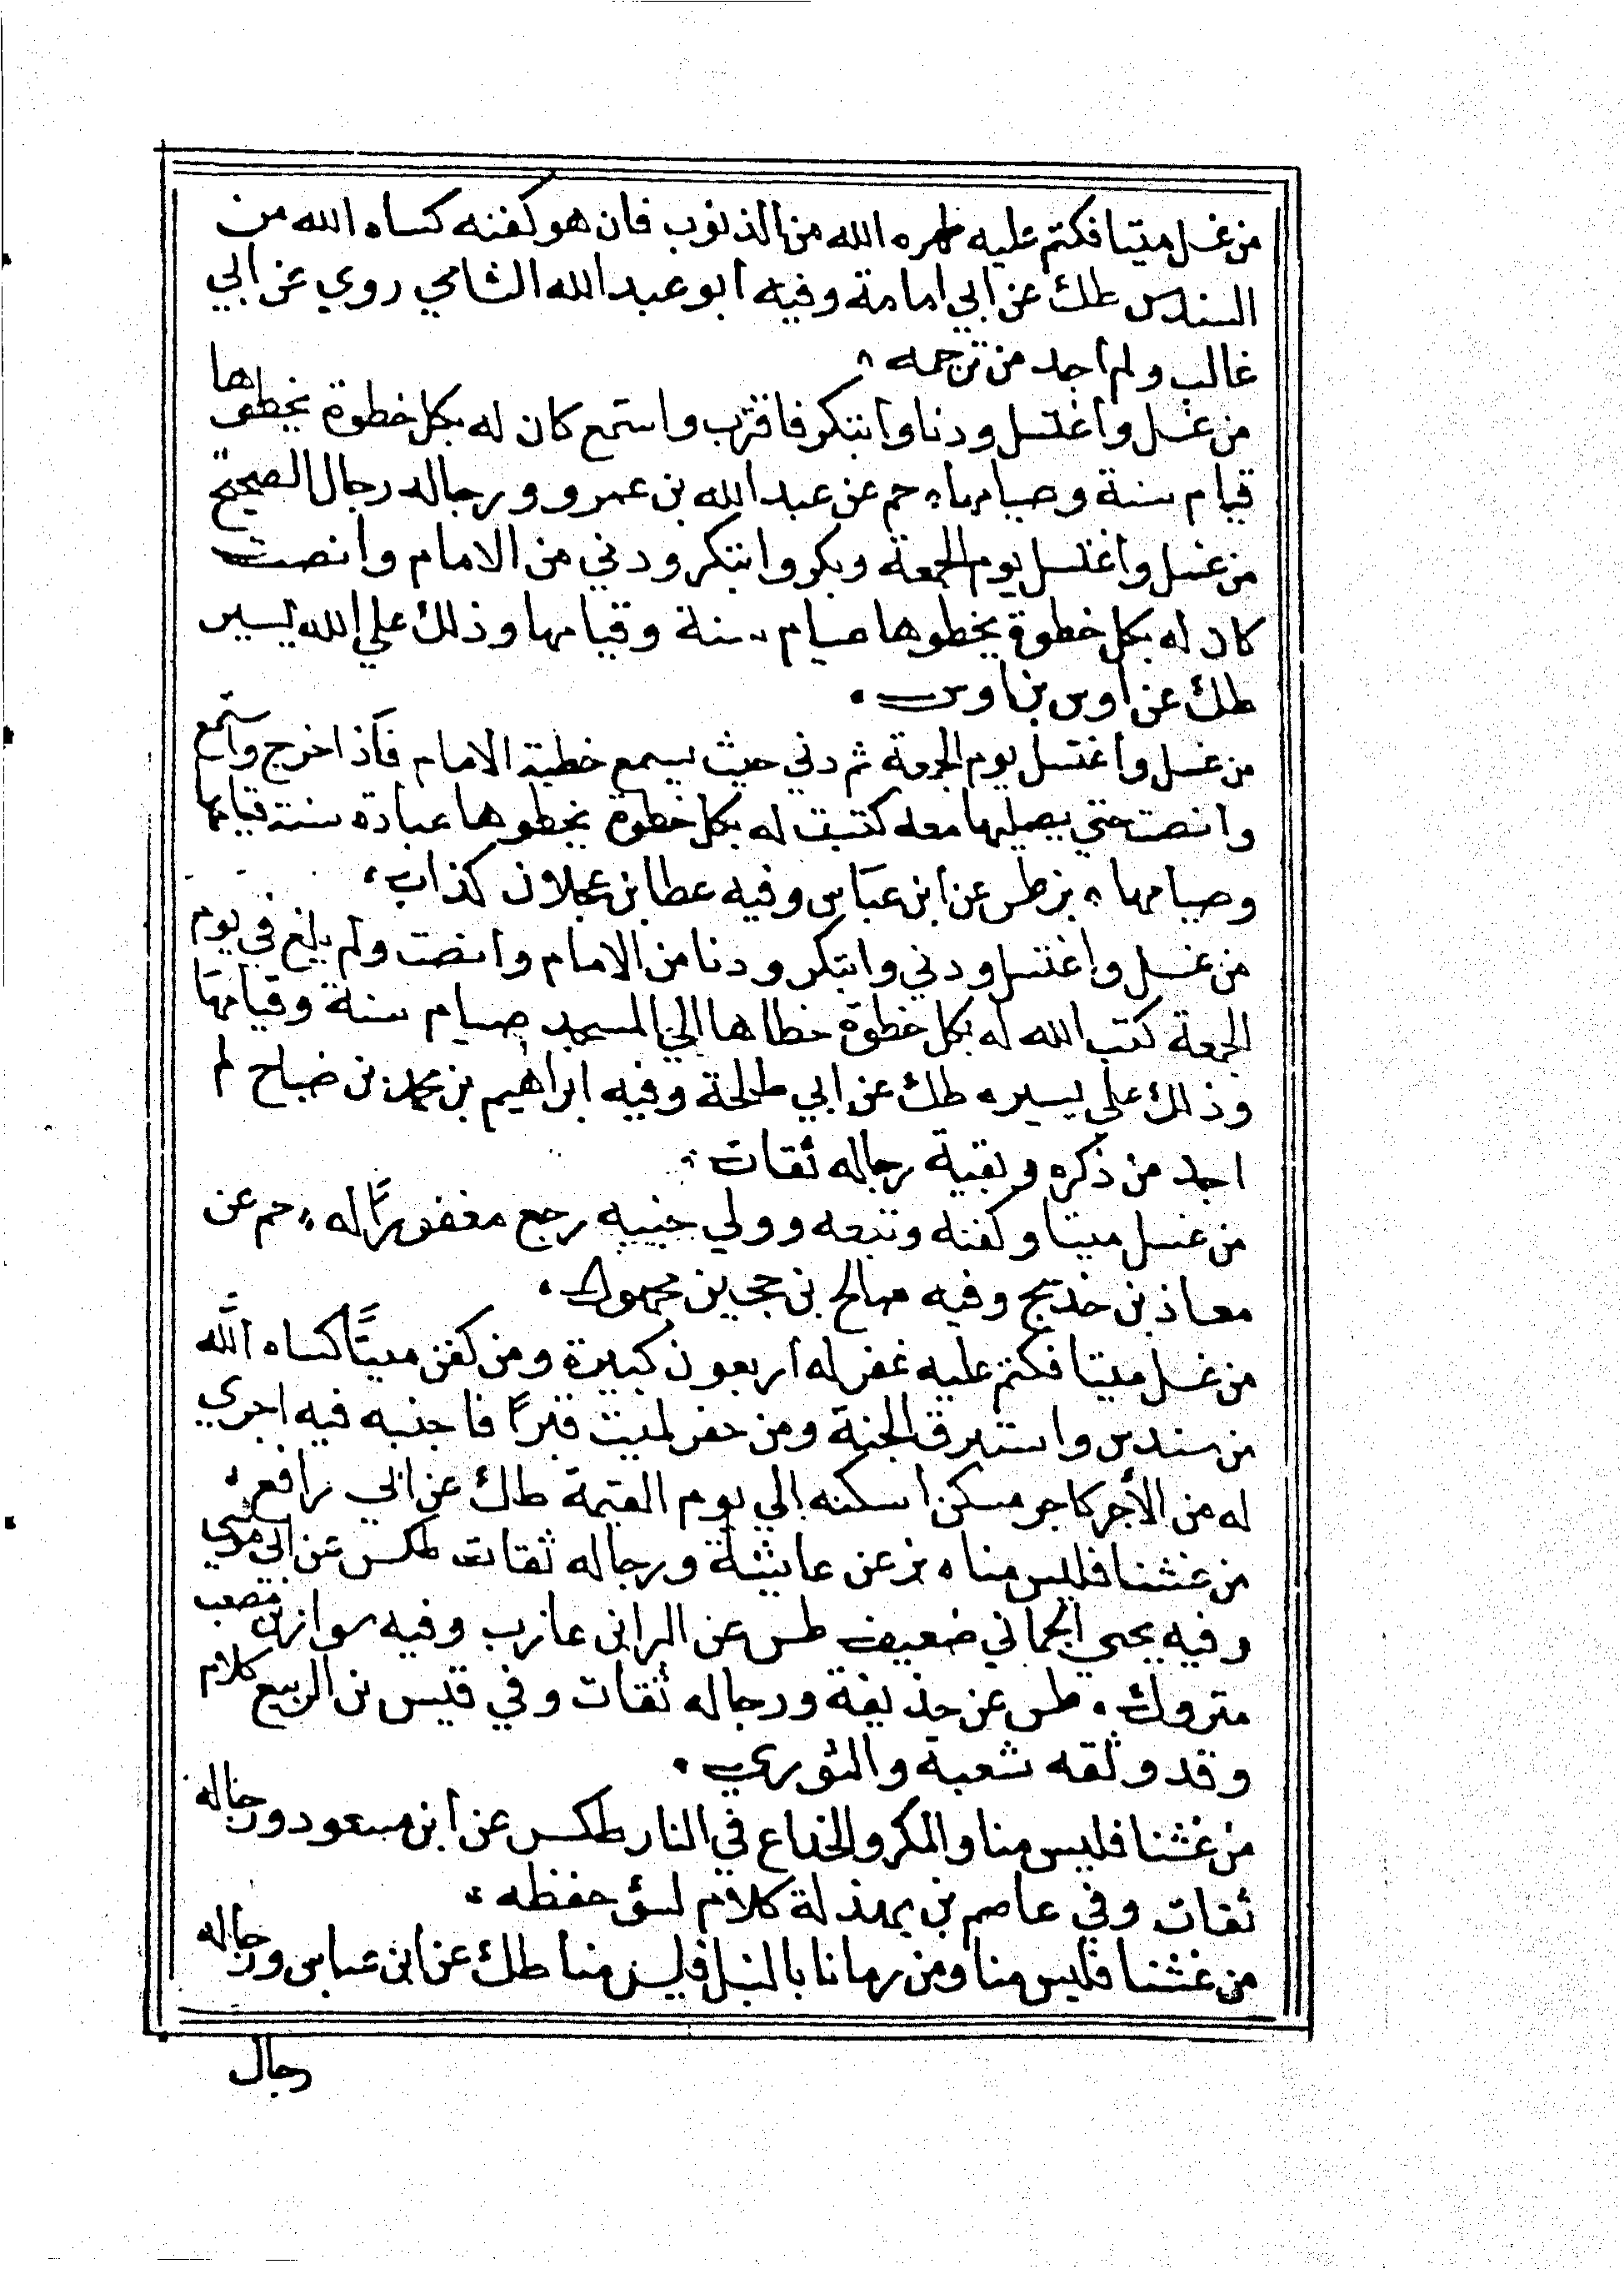 من غسل ميتا فكتم عليه طهره الله من الذنوب فان هو كفنه كساه الله من
السندس طك عن ابي امامة وفيه ابو عبد الله الشامي روي عن ابي
غالب ولم اجد من ترجمه
من غسل واغتسل ودنا وابتكر فاقترب واستمع كان له بكل خطوة يخطوها
قيام سنة وصيامها حم عن عبد الله بن عمرو ورجاله رجال الصحيح
من غسل واغتسل يوم الجمعة وبكر وابتكر ودني من الامام وانصت
كان له بكل خطوة يخطوها صيام سنة وقيامها وذلك علي الله يسير
طك عن اوس بن اوس
من غسل واغتسل يوم الجمعة ثم دني حيث يسمع خطبة الامام فاذا خرج واستمع
وانصت حتي يصليها معه كتبت له بكل خطوة يخطوها عبادة سنة قيامها
وصيامها بز طس عن ابن عباس وفيه عطا بن عجلان كذاب
من غسل واغتسل ودني وابتكر ودنا من الامام وانصت ولم يلغ في يوم
الجمعة كتب الله له بكل خطوة خطاها الي المسجد صيام سنة وقيامها
وذلك علي يسير طك عن ابي طلحة وفيه ابراهيم بن محمد بن ضباح لم
اجد من ذكره وبقية رجاله ثقات
من غسل ميتا وكفنه وتبعه وولي جنبيه رجع مغفورًا له حم عن
معاذ بن خديج وفيه صالح بن حجين مجهول
من غسل ميتا فكتم عليه غفر له اربعون كبيرة ومن كفن ميتًا كساه الله
من سندس واستبرق الجنة ومن حفر لميت قبرًا فاجنبه فيه اجري
له من الأجر كاجر مسكن اسكنه الي يوم القيمة طك عن ابي رافع
من غشنا فليس منا بز عن عايشة ورجاله ثقات طكس عن ابي موسي
وفيه يحيي الحماني ضعيف طس عن البرا بن عازب وفيه سوار بن مصعب
متروك طس عن حذيفة ورجاله ثقات وفي قيس بن الربيع كلام
وقد وثقه شعبة والثوري
من غشنا فليس منا والمكر والخداع في النار طكس عن ابن مسعود ورجاله
ثقات وفي عاصم بن بهدلة كلام لسؤ حفظه
من غشنا فليس منا ومن رمانا بالنبل فليس منا طك عن ابن عباس ورجاله
رجال